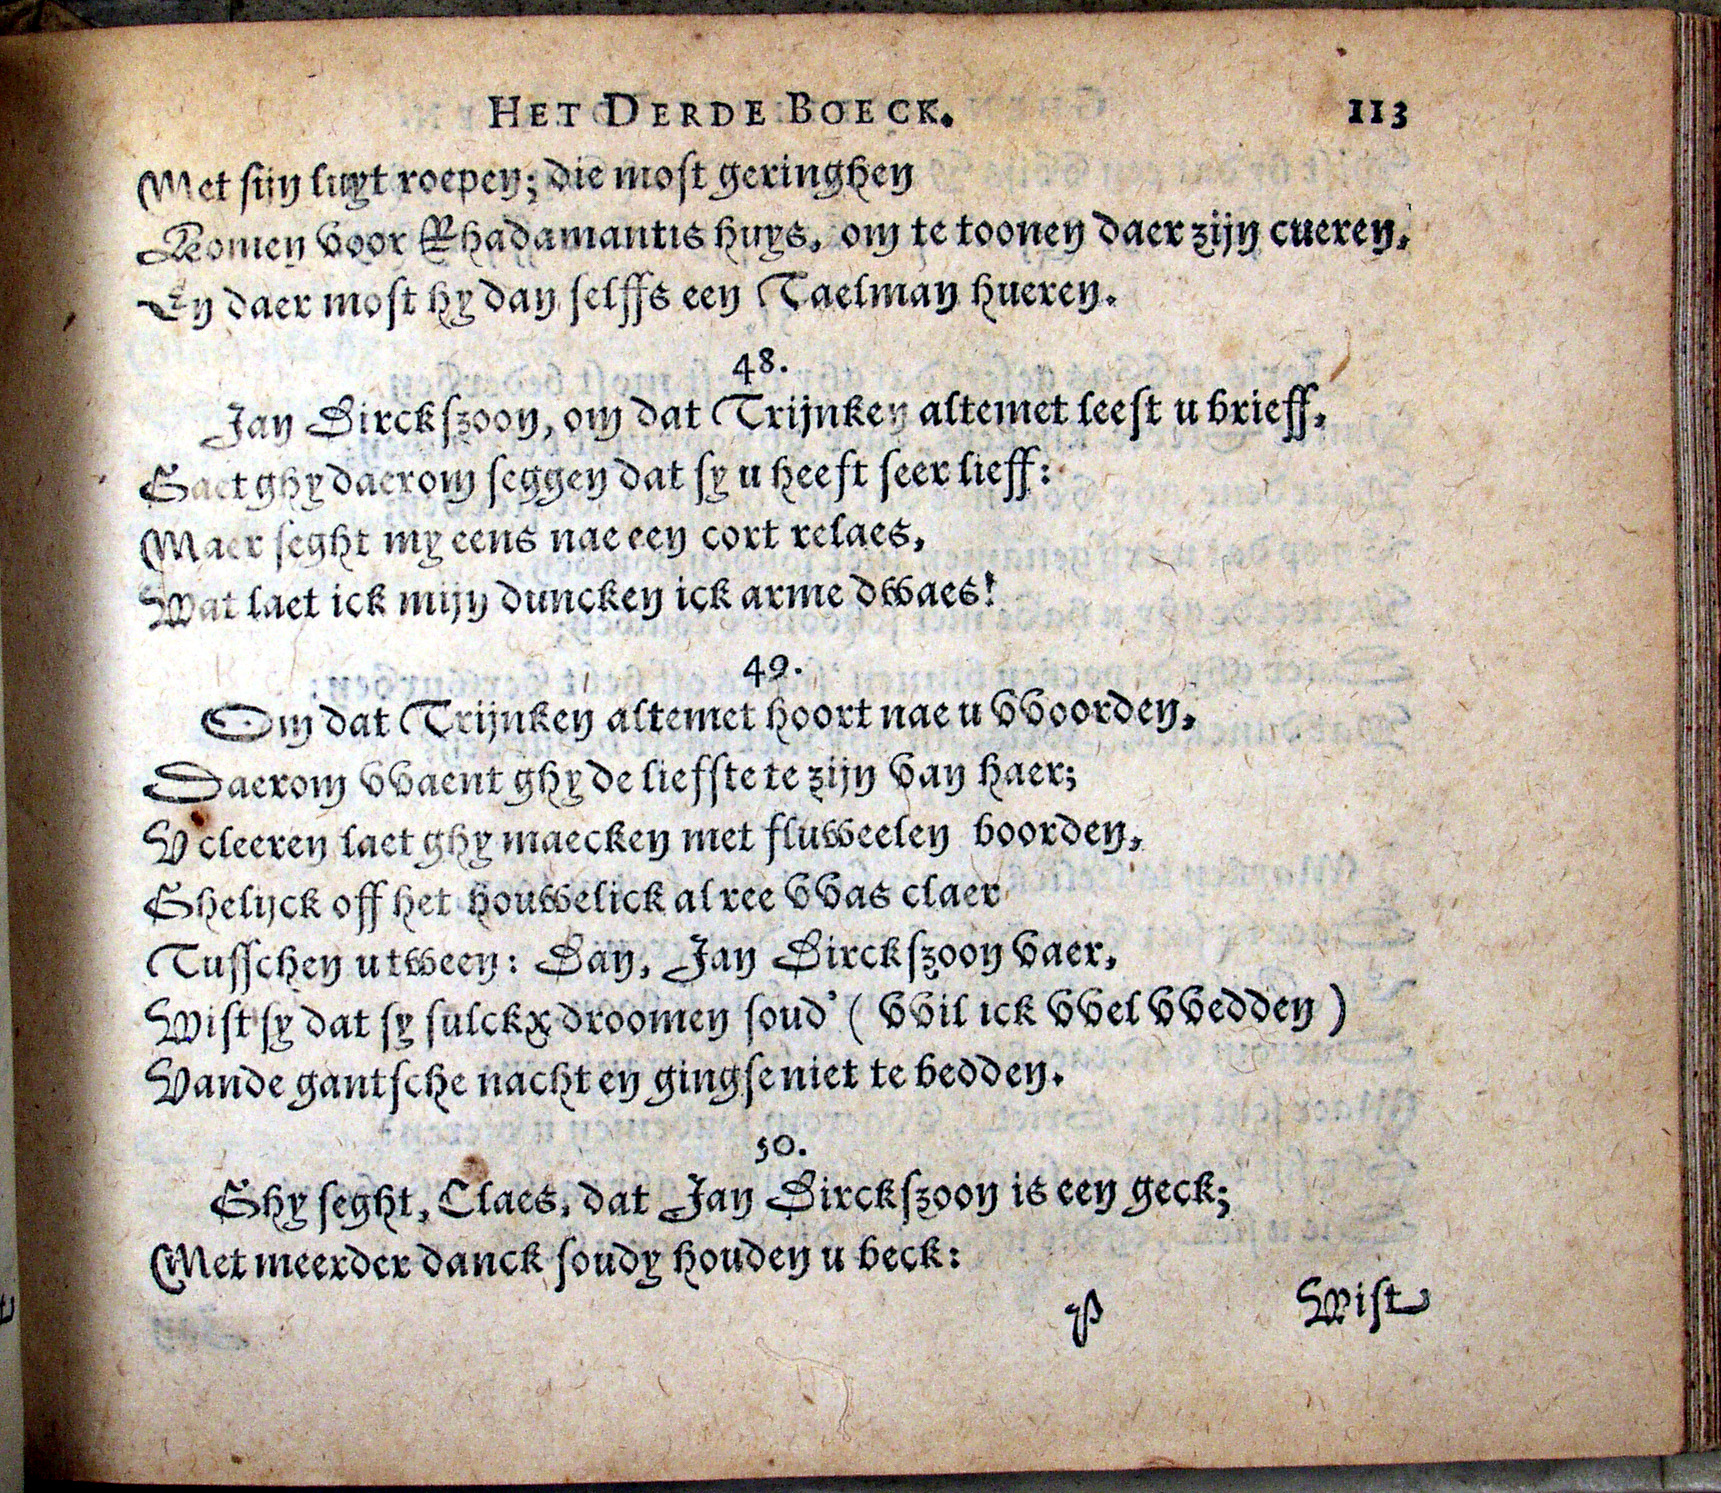 HET DERDE BOECK. 113
Met sijn luyt roepen; die most geringhen
Komen voor Rhadamantis huys, om te toonen daer zijn cueren,
En daer most hy dan selffs een Taelman hueren.
48.
Jan Dirckszoon, om dat Trijnken altemet leest u brieff,
Gaet ghy daerom seggen dat sy u heeft seer lieff:
Maer seght my eens nae een cort relaes,
Wat laet ick mijn duncken ick arme dwaes!
49.
Om dat Trijnken altemet hoort nae u vvoorden,
Daerom vvaent ghy de liefste te zijn van haer;
V cleeren laet ghy maecken met fluweelen boorden,
Ghelijck off het houwelick al ree vvas claer
Tusschen u tween: Dan, Jan Dirckszoon vaer,
Wist sy dat sy sulckx droomen soud' (vvil ick vvel vvedden)
Vande gantsche nacht en gingse niet te bedden.
50.
Ghy seght, Claes, dat Jan Dirckszoon is een geck;
Met meerder danck soudy houden u beck:
P Wist